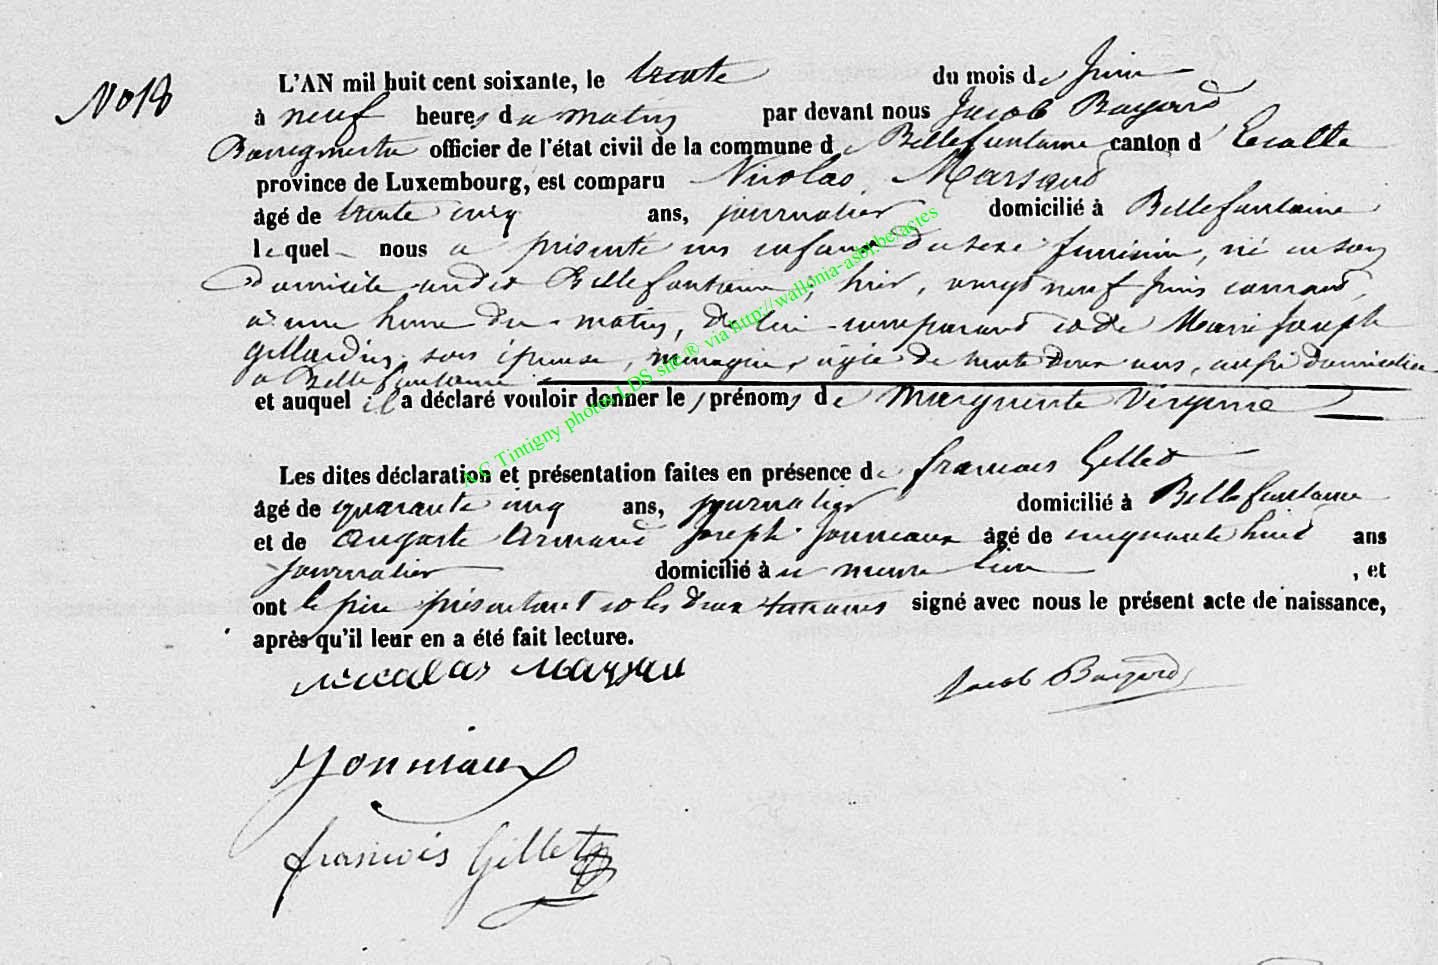 No 18
L'AN mil huit cent soixante, le trente du mois de Juin
à neuf heures du matin par devant nous Jacob Bayard
Bourgmestre officier de l'état civil de la commune de Bellefontaine canton d'Etalle
province de Luxembourg, est comparu Nicolas Marsaud
âgé de trente cinq ans, journalier domicilié à Bellefontaine
lequel nous a présenté un enfant du sexe féminin, né en son
domicile audit Bellefontaine, hier, vingt neuf Juin courant,
à une heure du matin, de lui comparant et de Marie Joseph
Gillardin, son épouse, ménagère, âgée de trente deux ans, aussi domiciliée
à Bellefontaine
et auquel il a déclaré vouloir donner les prénoms de Marguerite Virginie
Les dites déclaration et présentation faites en présence de françois Gillet
âgé de quarante cinq ans, journalier domicilié à Bellefontaine
et de Auguste Armand Joseph Jonniaux âgé de cinquante huit ans
journalier domicilié à même lieu , et
ont le père présentant et les deux témoins signé avec nous le présent acte de naissance,
après qu'il leur en a été fait lecture.
Nicolas Marsau
Jacob Bayard
Jonniaux
françois Gillet
AC Tintigny photos LDS site ® via http://wallonia-asbl.be/actes